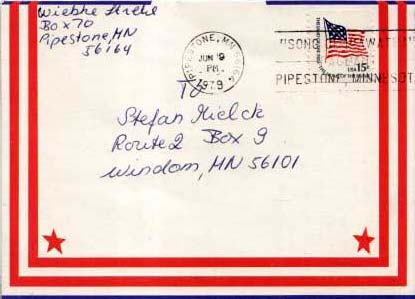 Wiebke
Box 70
Pipestone, MN
56164
PIPESTONE, MN
JUN 9
PM
1979
"SONG
PIPESTONE, MINNESOT
USA 15c
To
Stefan Mielck
Route 2 Box 9
Windom, MN 56101